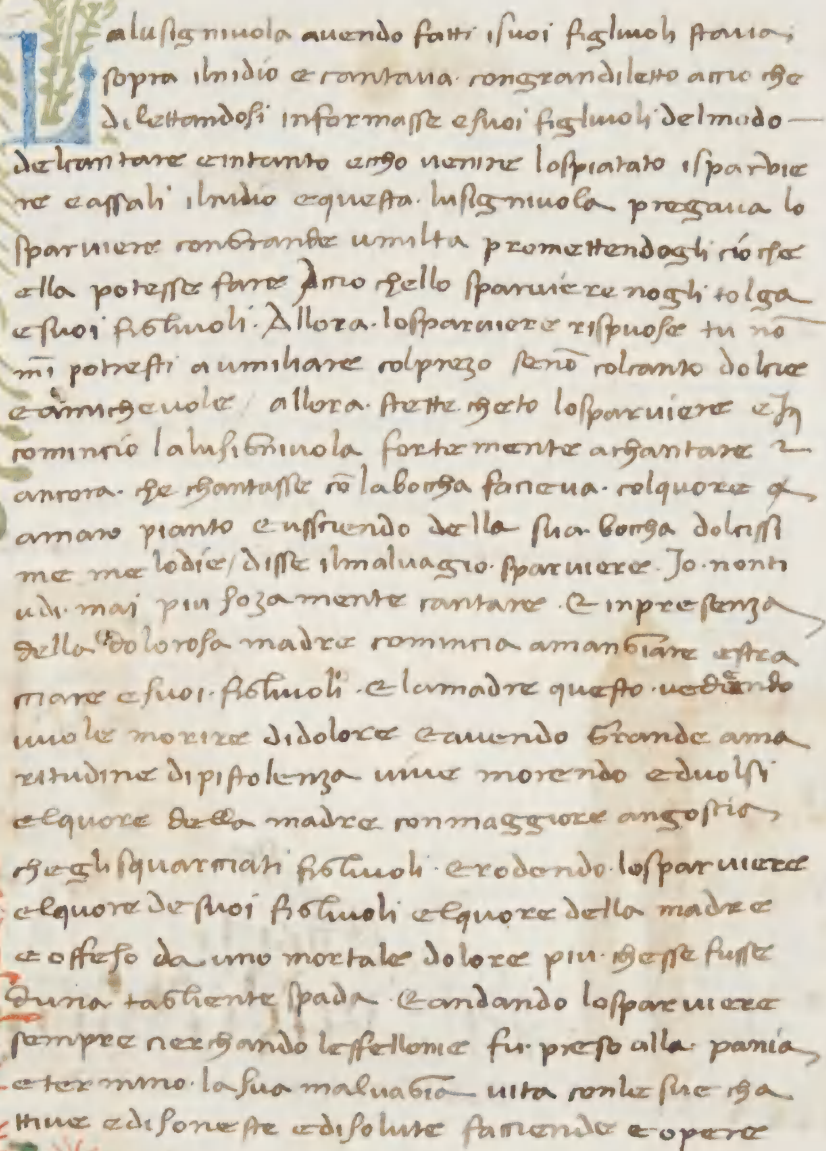 La lusigniuola auendo fatti isuoi figliuoli staua
sopra ilnidio e cantaua congrandiletto accio che
dilettandosi informasse esuoi figliuoli delmodo
delcantare eintanto eccho uenire lospiatato isparuie
re eassali ilnidio equesta lusigniuola pregaua lo
sparuiere congrande umilta promettendogli cio che
ella potesse fare Accio chello sparuiere nogli tolga
esuoi figliuoli. Allora. losparuiere rispuose tu nō
mi potresti aumiliare colprezo senō colcanto dolcie
eamicheuole / allora. stette. cheto losparuiere eIn
comincio lalusigniuola fortemente achantare 2
ancora. che chantasse cō laboccha facieua. colquore
amaro pianto eusciendo della sua boccha dolcissi
me melodie / disse ilmaluagio. sparuiere. Io. nonti
udi. mai piu sozamente cantare. E inpresenza
della dolorosa madre comincia amangiare estra
cciare esuoi. figliuoli. E lamadre questo. uedendo
uuole morire didolore Eauendo Grande ama
ritudine dipistolenza uiue morendo eduolsi
elquore della madre conmaggiore angoscia
chegli squarciati figliuoli. Erodendo. losparuiere
elquore desuoi figliuoli elquore della madre
e offeso da uno mortale dolore piu. chesse fusse
duna tagliente spada. Eandando losparuiere
sempre cierchando leffellonie fu. preso alla. pania
etermino. lasua maluagia uita conle sue cha
ttiue edisoneste edisolute facciende e opere